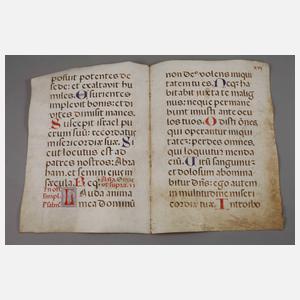 posuit potentes de
sede: et exaltavit hu
miles. Esurientes
implevit bonis: et di
vites dimisit inanes.
Suscepit israel pu
erum suũ: recordatus
misericordiæ suæ. Si
cut locutus est ad
patres nostros: Abra
ham. et semini eius in
sæcula.
Lauda anima
mea dominũ
xvi
non deꝰ volens iniqui
tatem tu es. Neqꝫ ha
bitabit juxta te malig
nus: neque permane
bunt iniusti ante ocu
los tuos. Odisti oñes
qui operantur iniqui
tatem: perdes omnes
qui loquuntur menda
ciũ. Virũ sanguinuꝫ
et dolosum abomina
bitur dñs: ego autem
in multitudine miseri
cordiæ tuæ. Introibo